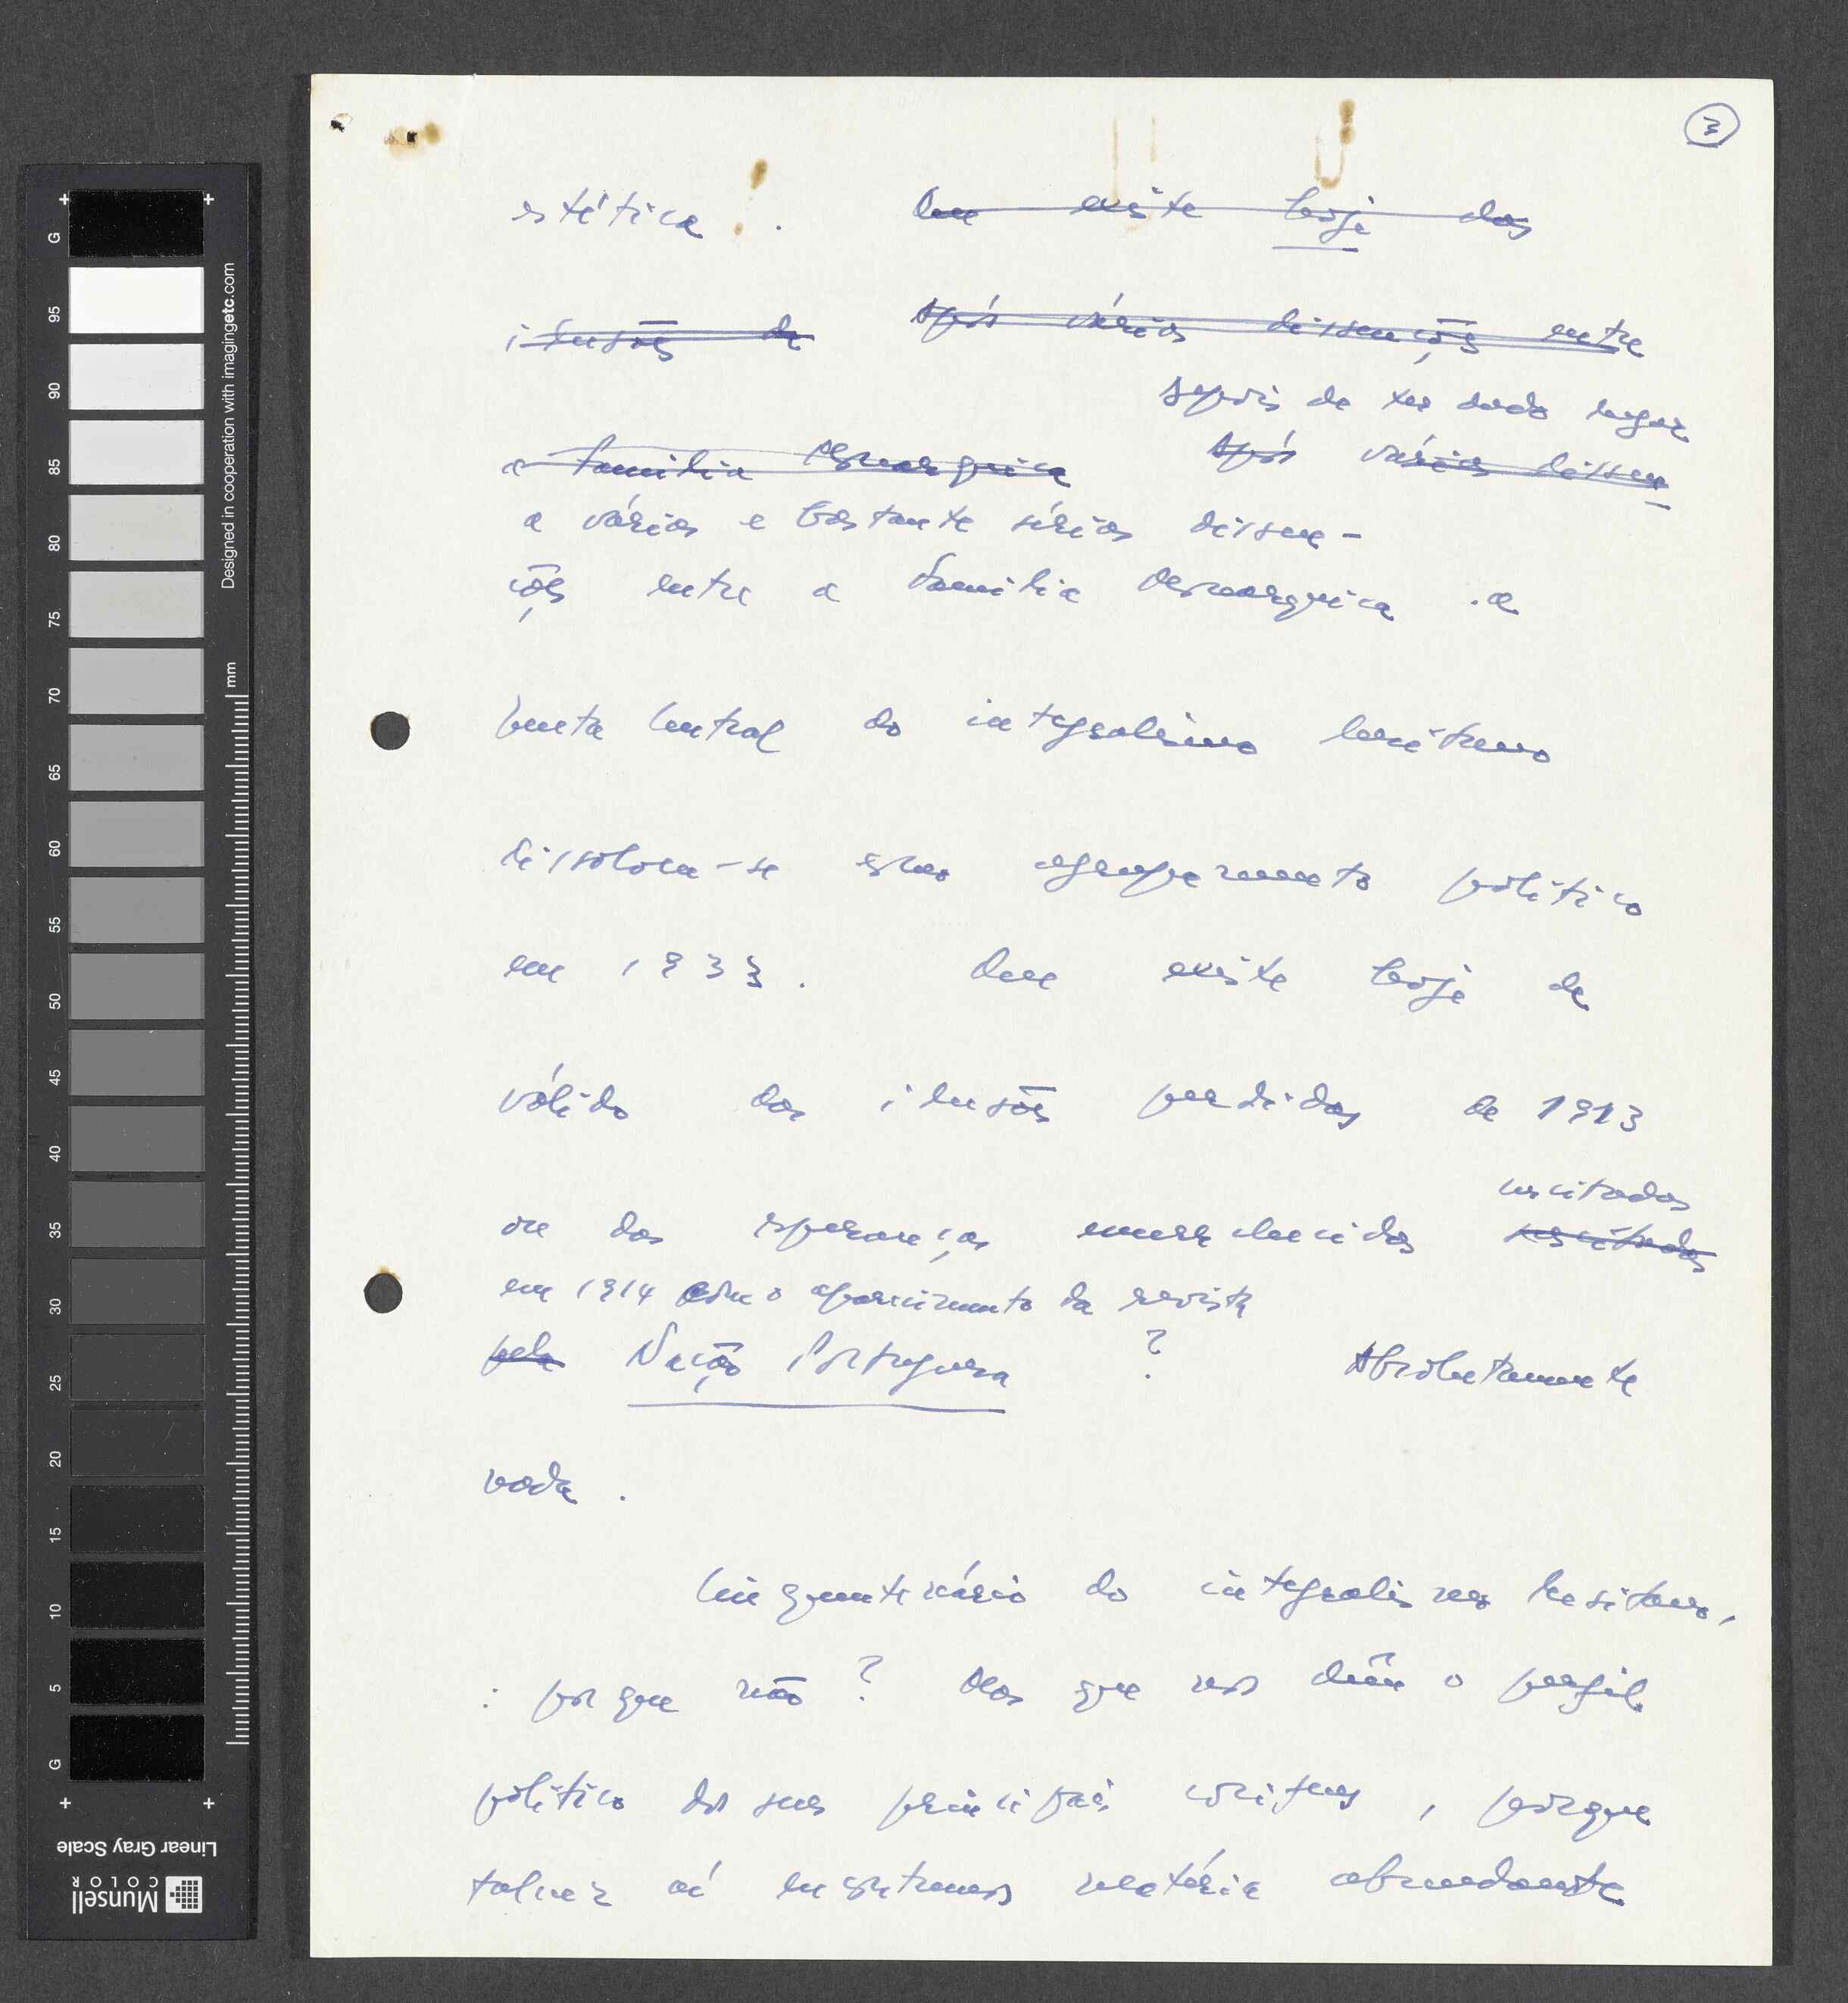 3
estética. Que existe hoje das
ilusões de Após várias dissenções entre
depois de ter dado lugar
a família monárquica Após várias dissen
a várias e bastante sérias dissen-
ções entre a família monárquica e a
Junta Central do integralismo lusitano
dissolveu-se esse agrupamento político
em 1933. Que existe hoje de
válido das ilusões perdidas de 1913
ou das esperanças emurchecidas suscitadas
em 1914 com o aparecimento da revista
pela Nação Portuguesa ? Absolutamente
nada.
Cinquentenário do integralismo lusitano,
: porque não ? Mas que nos dêem o perfil
político dos seus principais corifeus, porque
talvez aí encontremos matéria abundante
G
95
90
85
80
75
70
65
60
55
50
45
40
35
30
25
20
15
10
5
G
Designed in cooperation with imagingetc.com
mm
Linear Gray Scale
Munsell
COLOR